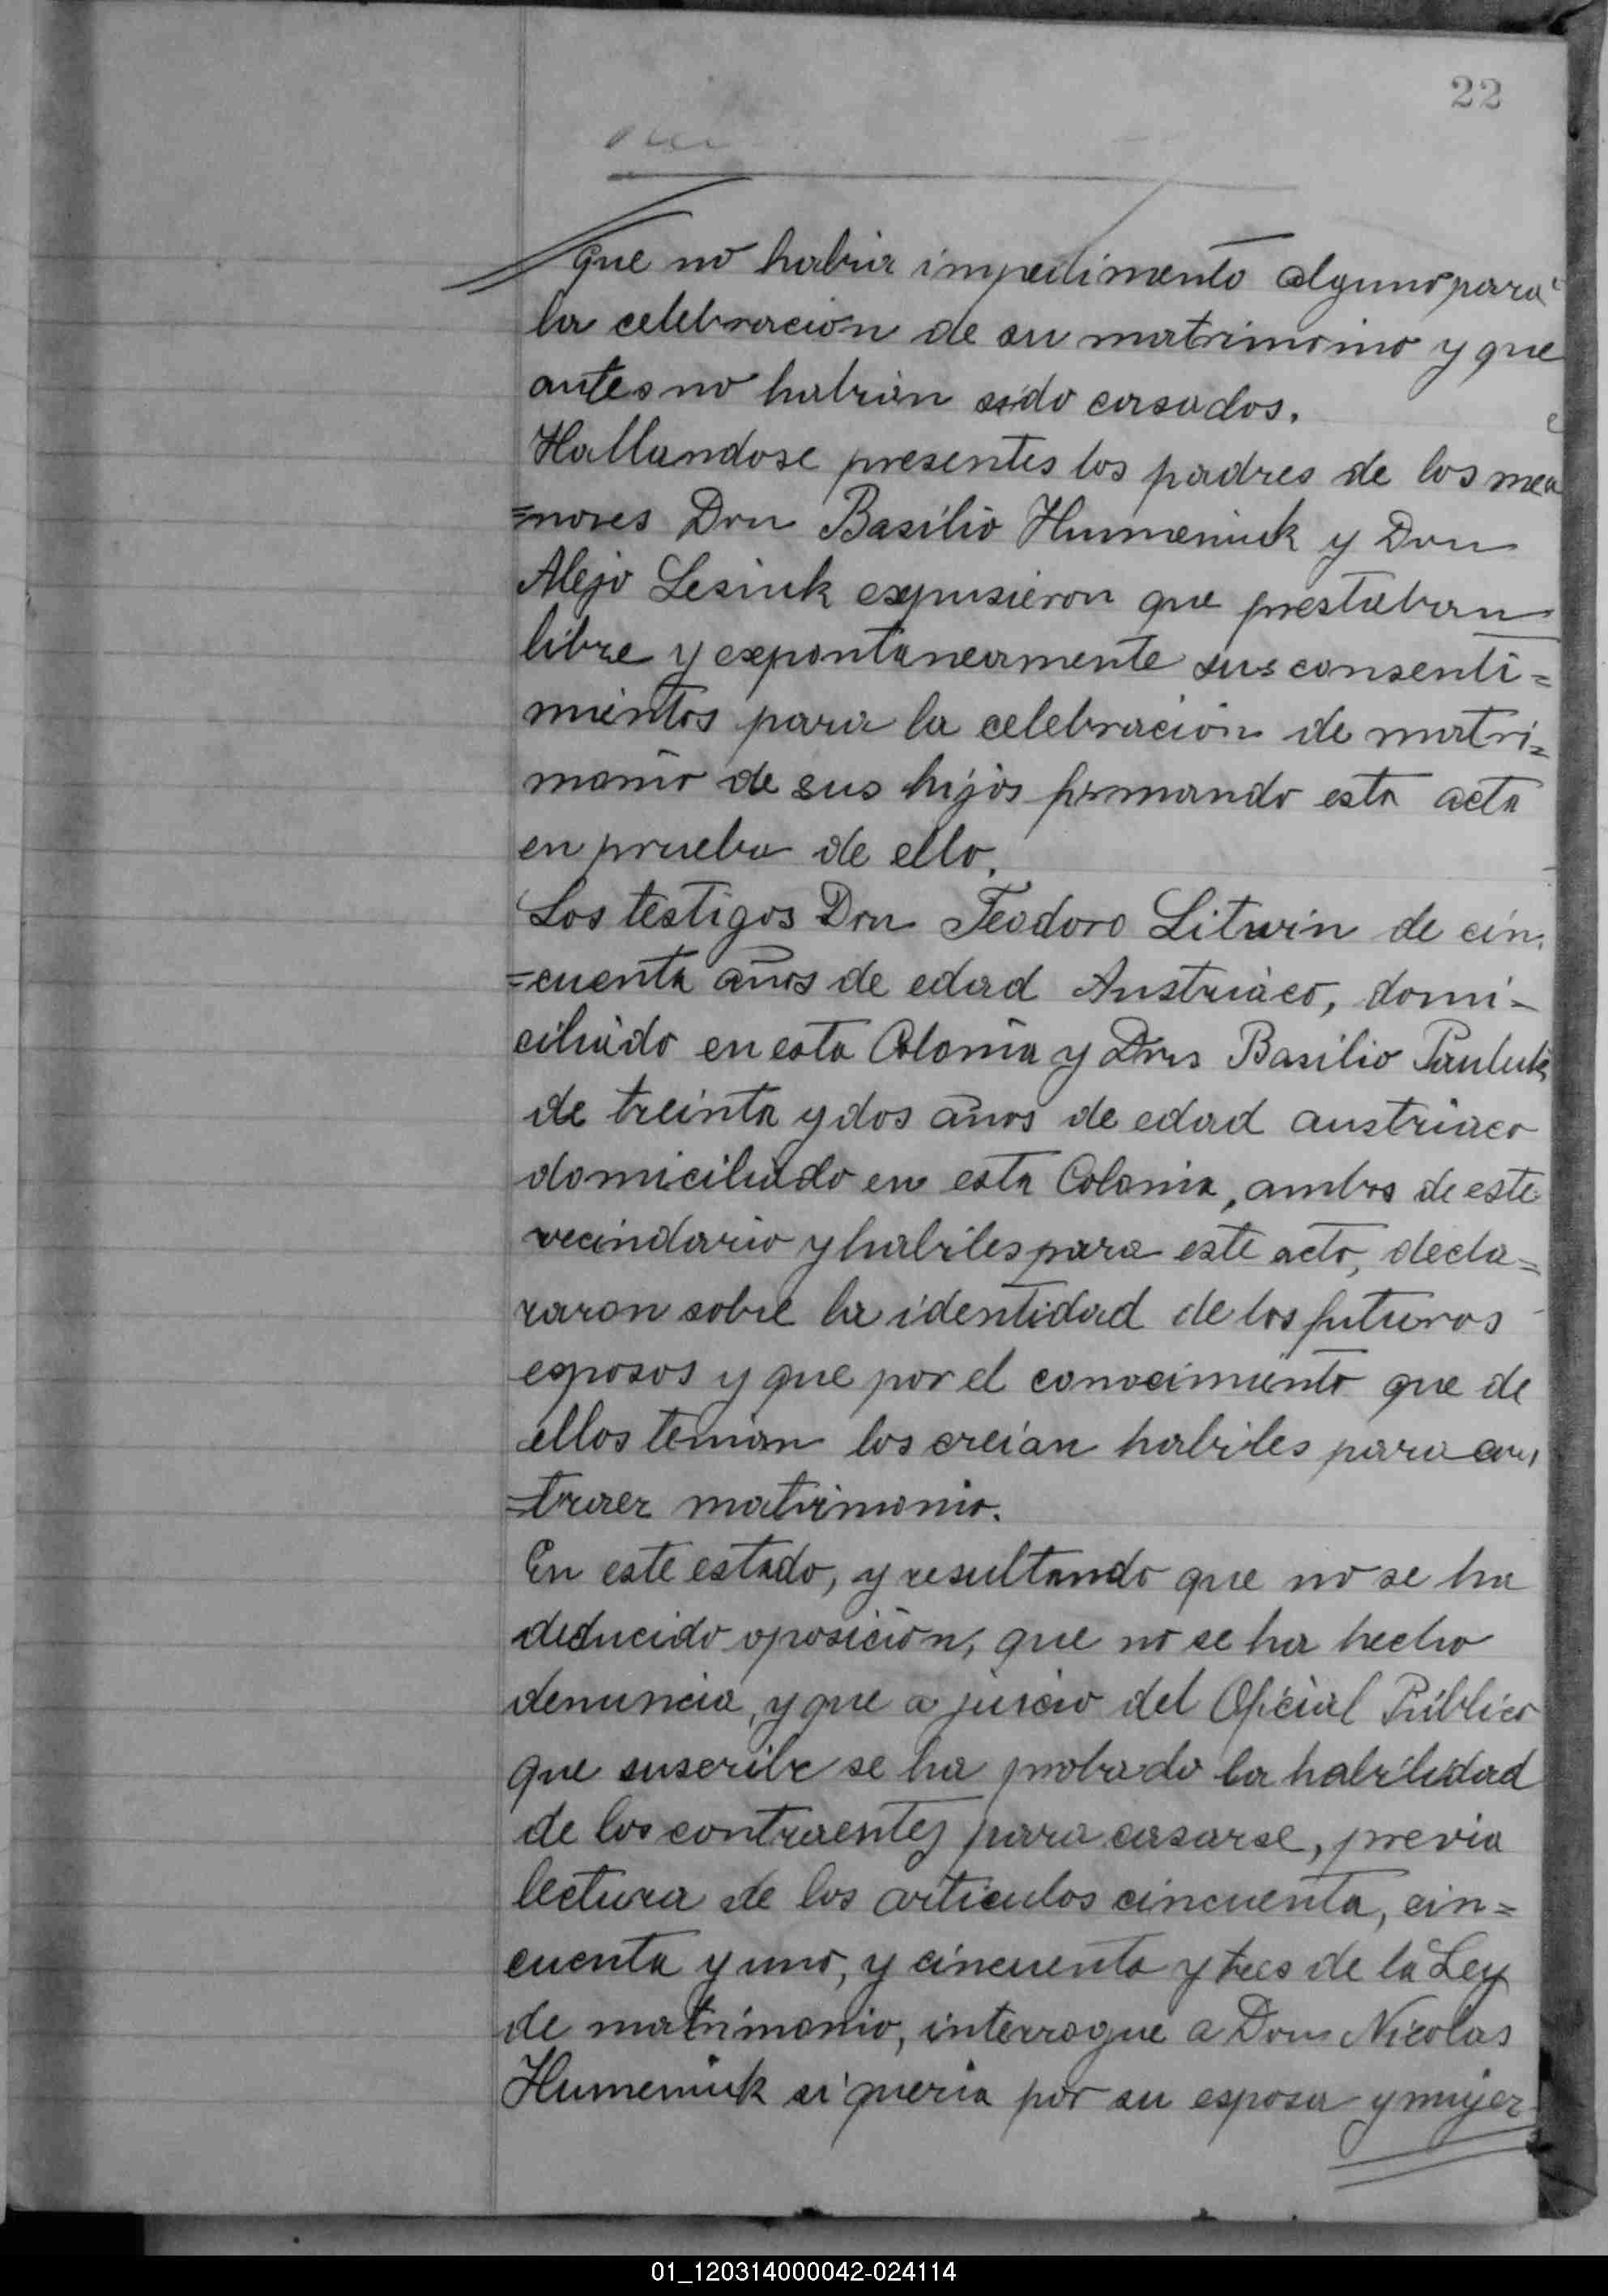 22
que no habia impedimento alguno para
la celebracion de su matrimonio y que
antes no habian sido casados.
Hallandose presentes los padres de los me
=nores Don Basilio Humeniuk y Don
Alejo Lesiuk expusieron que prestaban
libre y expontaneamente sus consenti=
mientos para la celebracion de matri=
monio de sus hijos firmando esta acta
en prueba de ello.
Los testigos Don Teodoro Litwin de cin
=cuenta años de edad Austriaco, domi-
ciliado en esta Colonia y Don Basilio
de treinta y dos años de edad austriaco
domiciliado en esta Colonia, ambos de este
vecindario y habiles para este acto, decla=
raron sobre la identidad de los futuros
esposos y que por el conocimiento que de
ellos tenian los creian habiles para con
=traer matrimonio.
En este estado, y resultando que no se ha
deducido oposición, que no se ha hecho
denuncia, y que a juicio del Oficial Público
que suscribe se ha probado la habilidad
de los contraentes para casarse, previa
lectura de los articulos cincuenta, cin=
cuenta y uno, y cincuenta y tres de la Ley
de matrimonio, interrogue a Don Nicolas
Humeniuk si queria por su esposa y mujer
01_120314000042-024114